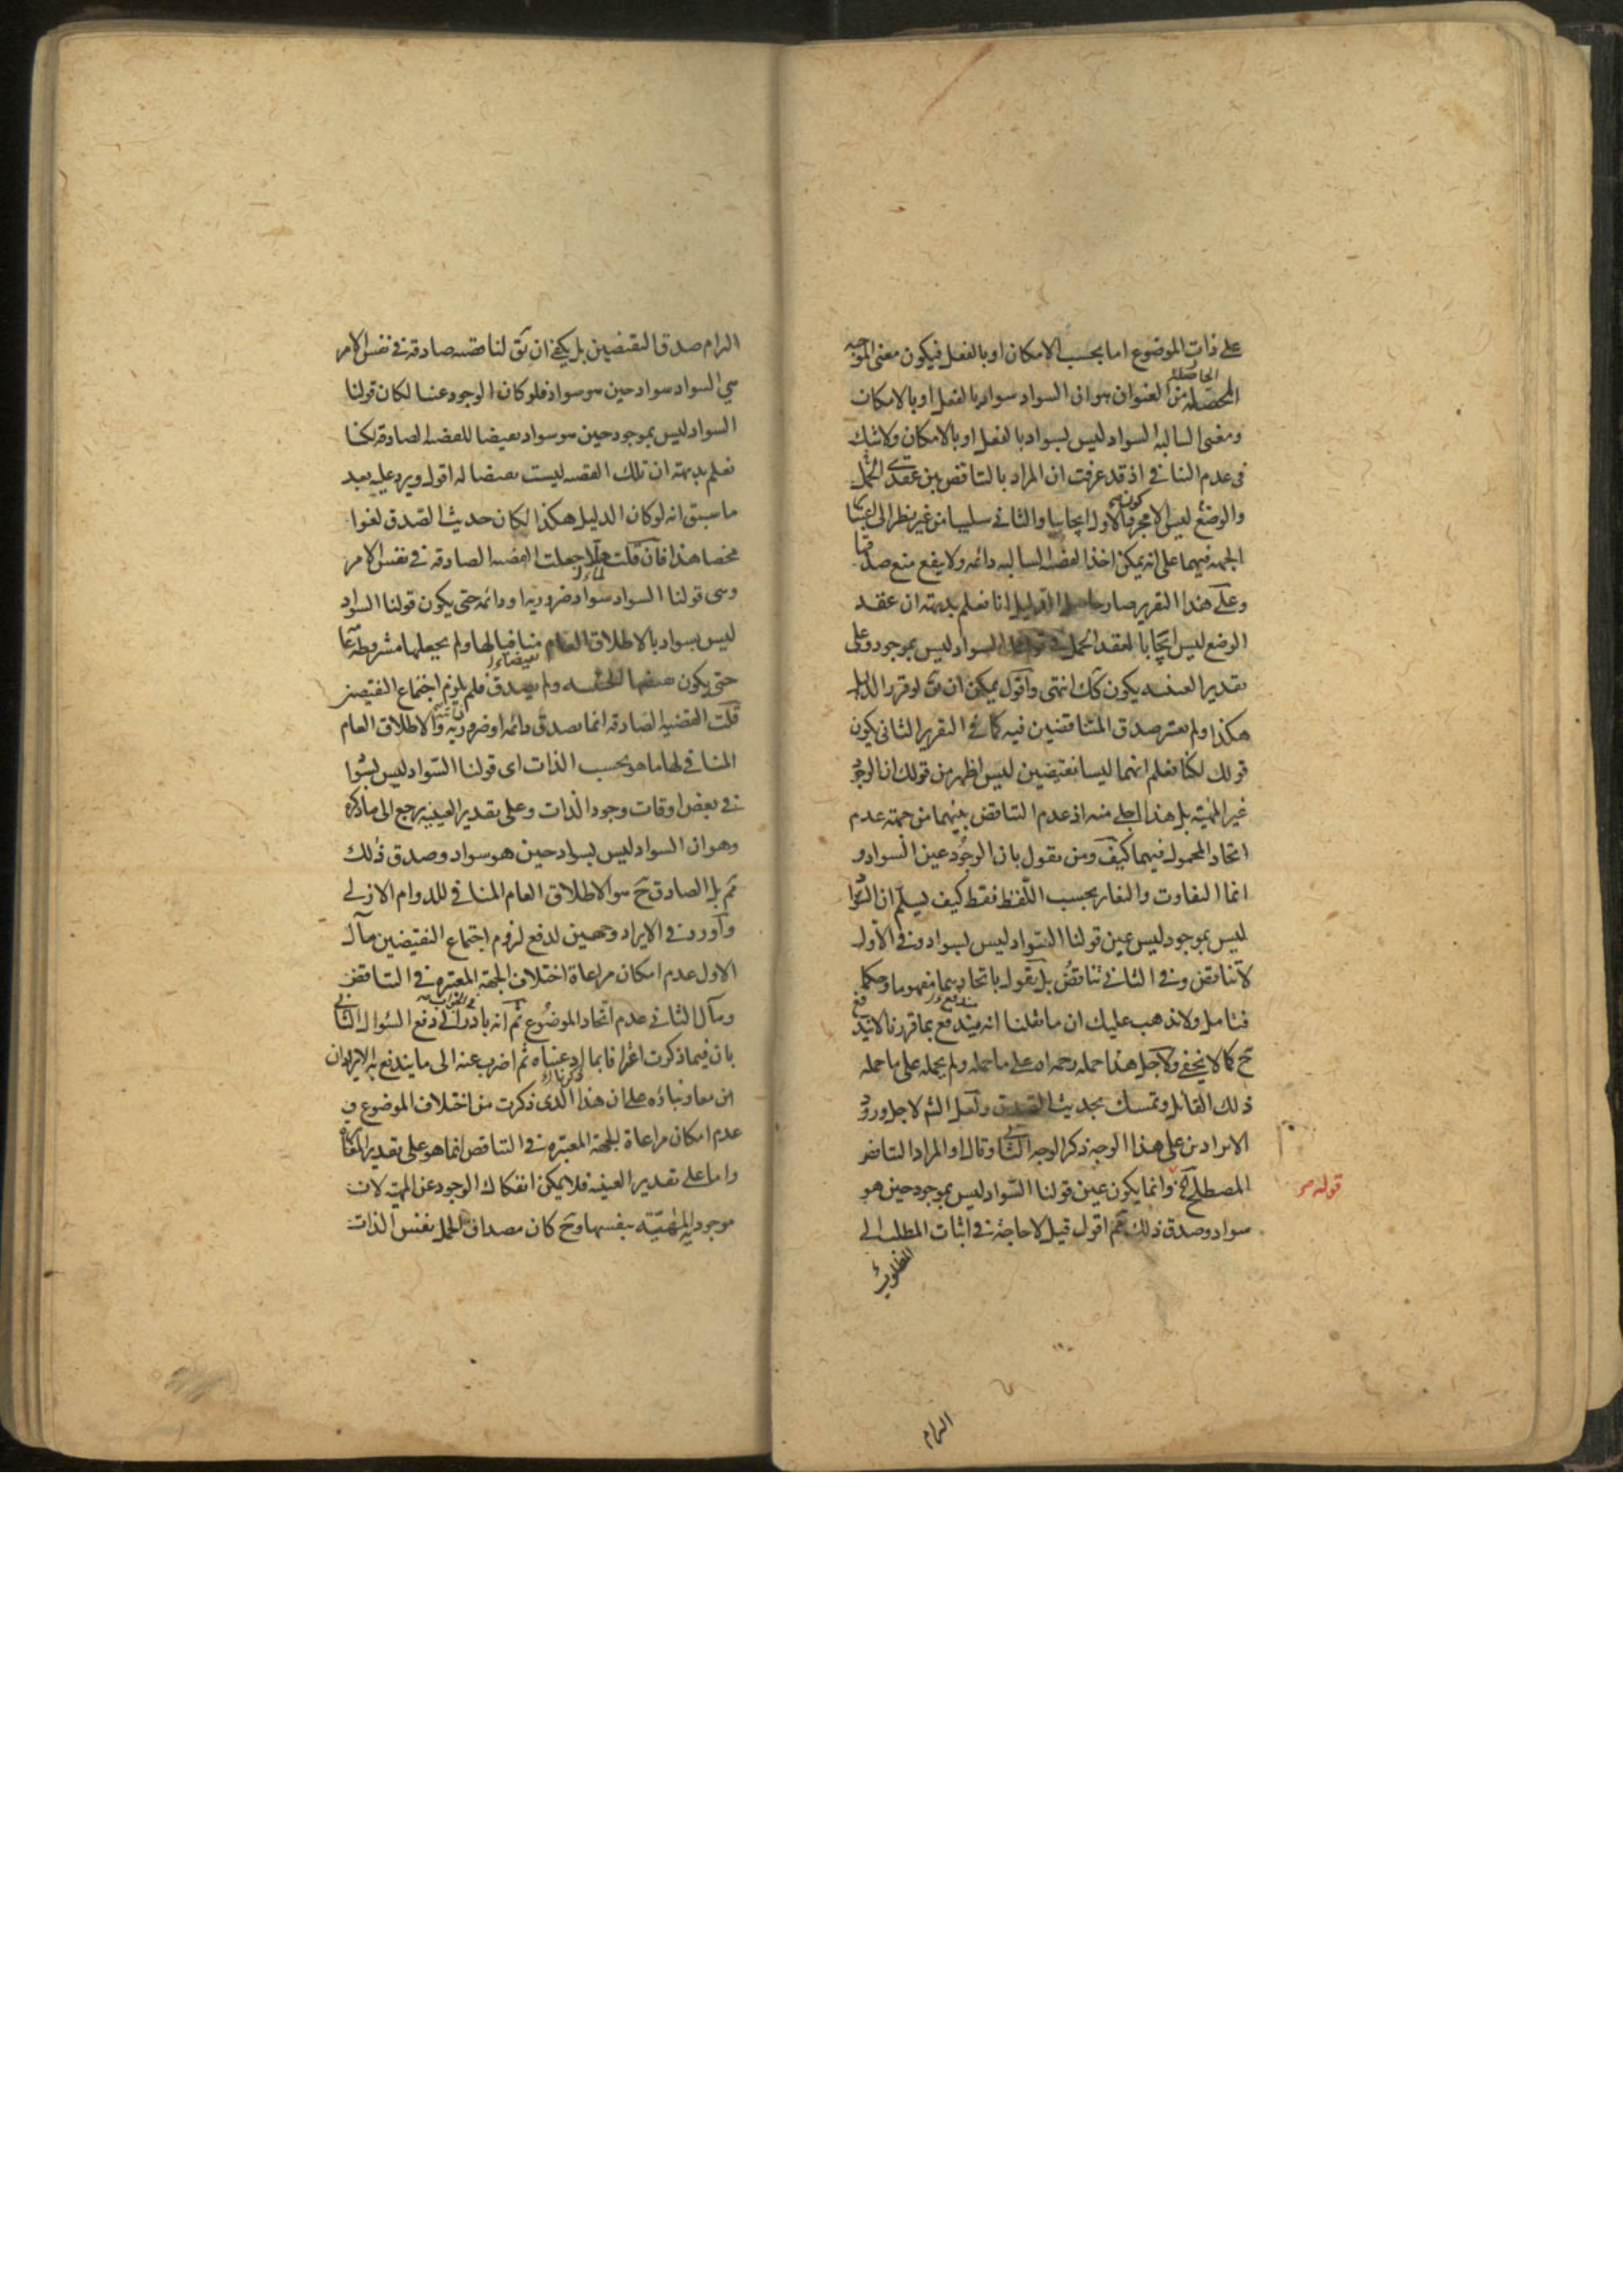 على ذات الموضوع اما بحسب الامكان او بالفعل فيكون معنى الموجبه
الحاصله
المحصله من العنوان هو ان السواد سواد بالفعل او بالامكان
ومعنى السالبه السواد ليس بسواد بالفعل او بالامكان ولا شك
فى عدم التنافى اذ قد عرفت ان المراد بالتناقض بين عقدى الحمل
والوضع ليس الا مجرد كون الاول ايجابيا والثانى سلبيا من غير نظر الى اعتبار
الجهه فيهما على انه يمكن اخذ القضيه السالبه دائمه ولا ينفع منع صدقها
وعلى هذا التقرير صار حاصل الدليل انا نعلم بديهة ان عقد
الوضع ليس ايجابا لعقد الحمل فى قولنا السواد ليس بموجود وعلى
تقدير العينيه يكون كك انتهى واقول يمكن ان يق لو قرر الدليل
هكذا ولم يعتبر صدق المتناقضين فيه كما فى التقرير الثانى يكون
قولك لكنا نعلم انهما ليسا نقيضين ليس اظهر من قولك ان الوجود
غير المهيّة بل هذا اجلى منه اذ عدم التناقض بينهما من جهة عدم
اتحاد المحمول فيهما كيف ومن يقول بان الوجود عين السواد و
انما التفاوت والتغاير بحسب اللفظ فقط كيف يسلّم ان السواد
ليس بموجود ليس عين قولنا السّواد ليس بسواد وفى الاول
لا تناقض وفى الثانى تناقض بل يقول باتحادهما مفهوما وحكما
فتامل ولا تذهب عليك ان ما نقلنا انه يندفع بما قررنا لا يندفع
ح كما لا يخفى ولاجل هذا حمله رحمه الله على ما حمله ولم يحمله على ما حمله
ذلك القائل وتمسك بحديث الصدق ولعل الشم لاجل ورود
الايرادين على هذا الوجه ذكر الوجه الثانى وقال او المراد التناقض
المصطلح آخ وانما يكون عين قولنا السّواد ليس بموجود حين هو
قوله ص
سواد وصدق ذلك ثم اقول قيل لا حاجة فى اثبات المطلب الى
المطلوب
الزام
الزام صدق النقيضين بل يكفى ان يق لنا قضيه صادقه فى نفس الامر
هى السواد سواد حين هو سواد فلو كان الوجود عينا لكان قولنا
السواد ليس بموجود حين هو سواد نقيضا للقضيه الصادقه لكنا
نعلم بديهة ان تلك القضيه ليست نقيضا له اقول ويرد عليه بعد
ما سبق انه لو كان الدليل هكذا لكان حديث الصّدق لغوا
محضا هذا فان قلت هلا جعلت القضيه الصادقه فى نفس الامر
وهى قولنا السواد سواد ضروريه او دائمه حتى يكون قولنا السواد
ليس بسواد بالاطلاق العام منافيا لها ولم يجعلها مشروطه عامه
حتى يكون نقيضها الحينيه ولم يصدق فلم يلزم اجتماع النقيضين
قلت القضيه الصادقه انما يصدق دائمه او ضروريه والاطلاق العام
المنافى لها ما هو بحسب الذات اى قولنا السّواد ليس بسواد
فى بعض اوقات وجود الذات وعلى تقدير العينيه يرجع الى ما ذكره
وهو ان السواد ليس بسواد حين هو سواد وصدق ذلك
ثم بل الصادق ح هو الاطلاق العام المنافى للدوام الازلى
واورد فى الايراد وجهين لدفع لزوم اجتماع النقيضين مآل
الاول عدم امكان مراعاة اختلاف الجهة المعتبره فى التناقض
ومآل الثانى عدم اتحاد الموضوع ثم انه بادر الى دفع السّوال الثانى
بان فيما ذكرت اعترافا بما ادعيناه ثم اضرب عنه الى ما يندفع به الايرادان
ذكرنا
معا وبناؤه على ان هذا الذى ذكرت من اختلاف الموضوع و
عدم امكان مراعاة الجهة المعتبره فى التناقض انما هو على تقدير المغايرة
واما على تقدير العينيه فلا يمكن انفكاك الوجود عن المهية لان
موجودية المهيّة بنفسها وح كان مصداق الحمل نفس الذات